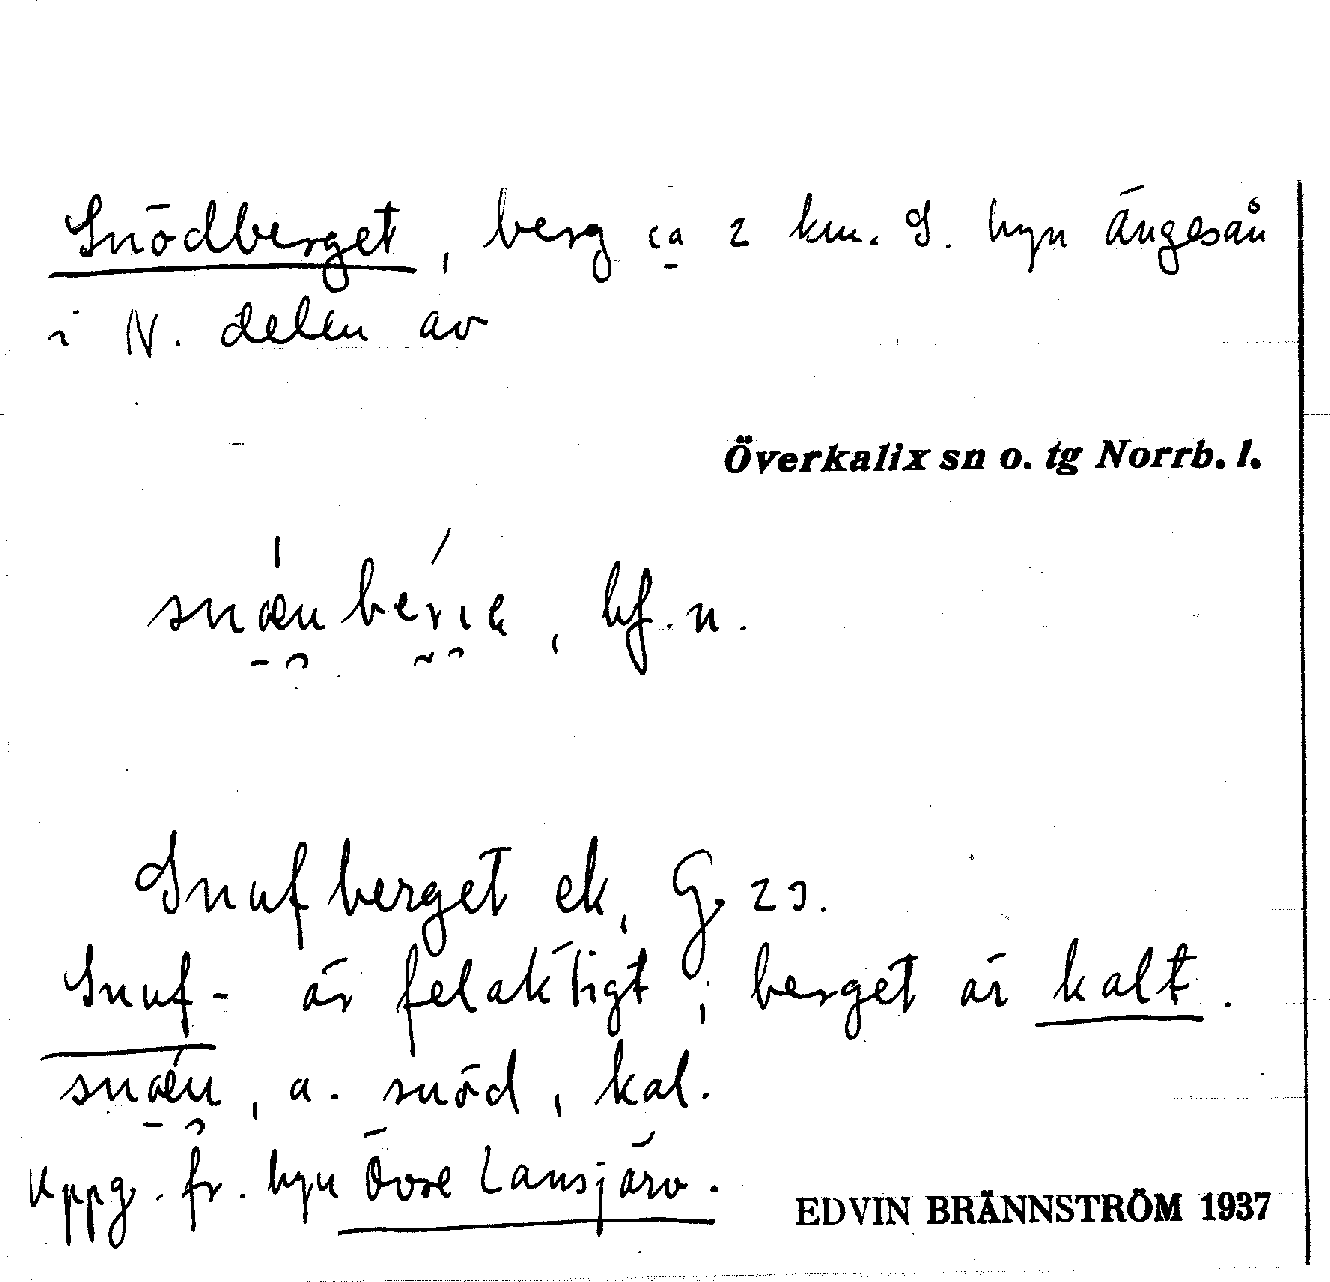 Snödberget, berg ca 2 km. S. byn Ängesån
i N. delen av
Överkalix sn o. tg Norrb. l.
snæu berıe, bf. n.
Snufberget ek. G. 23.
Snuf- är felaktigt; berget är kalt.
snæu, a. snöd, kal.
Uppg. fr. byn Övre Lansjärv.
EDVIN BRÄNNSTRÖM 1937